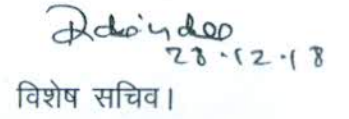 28.12.18
विशेष सचिव।